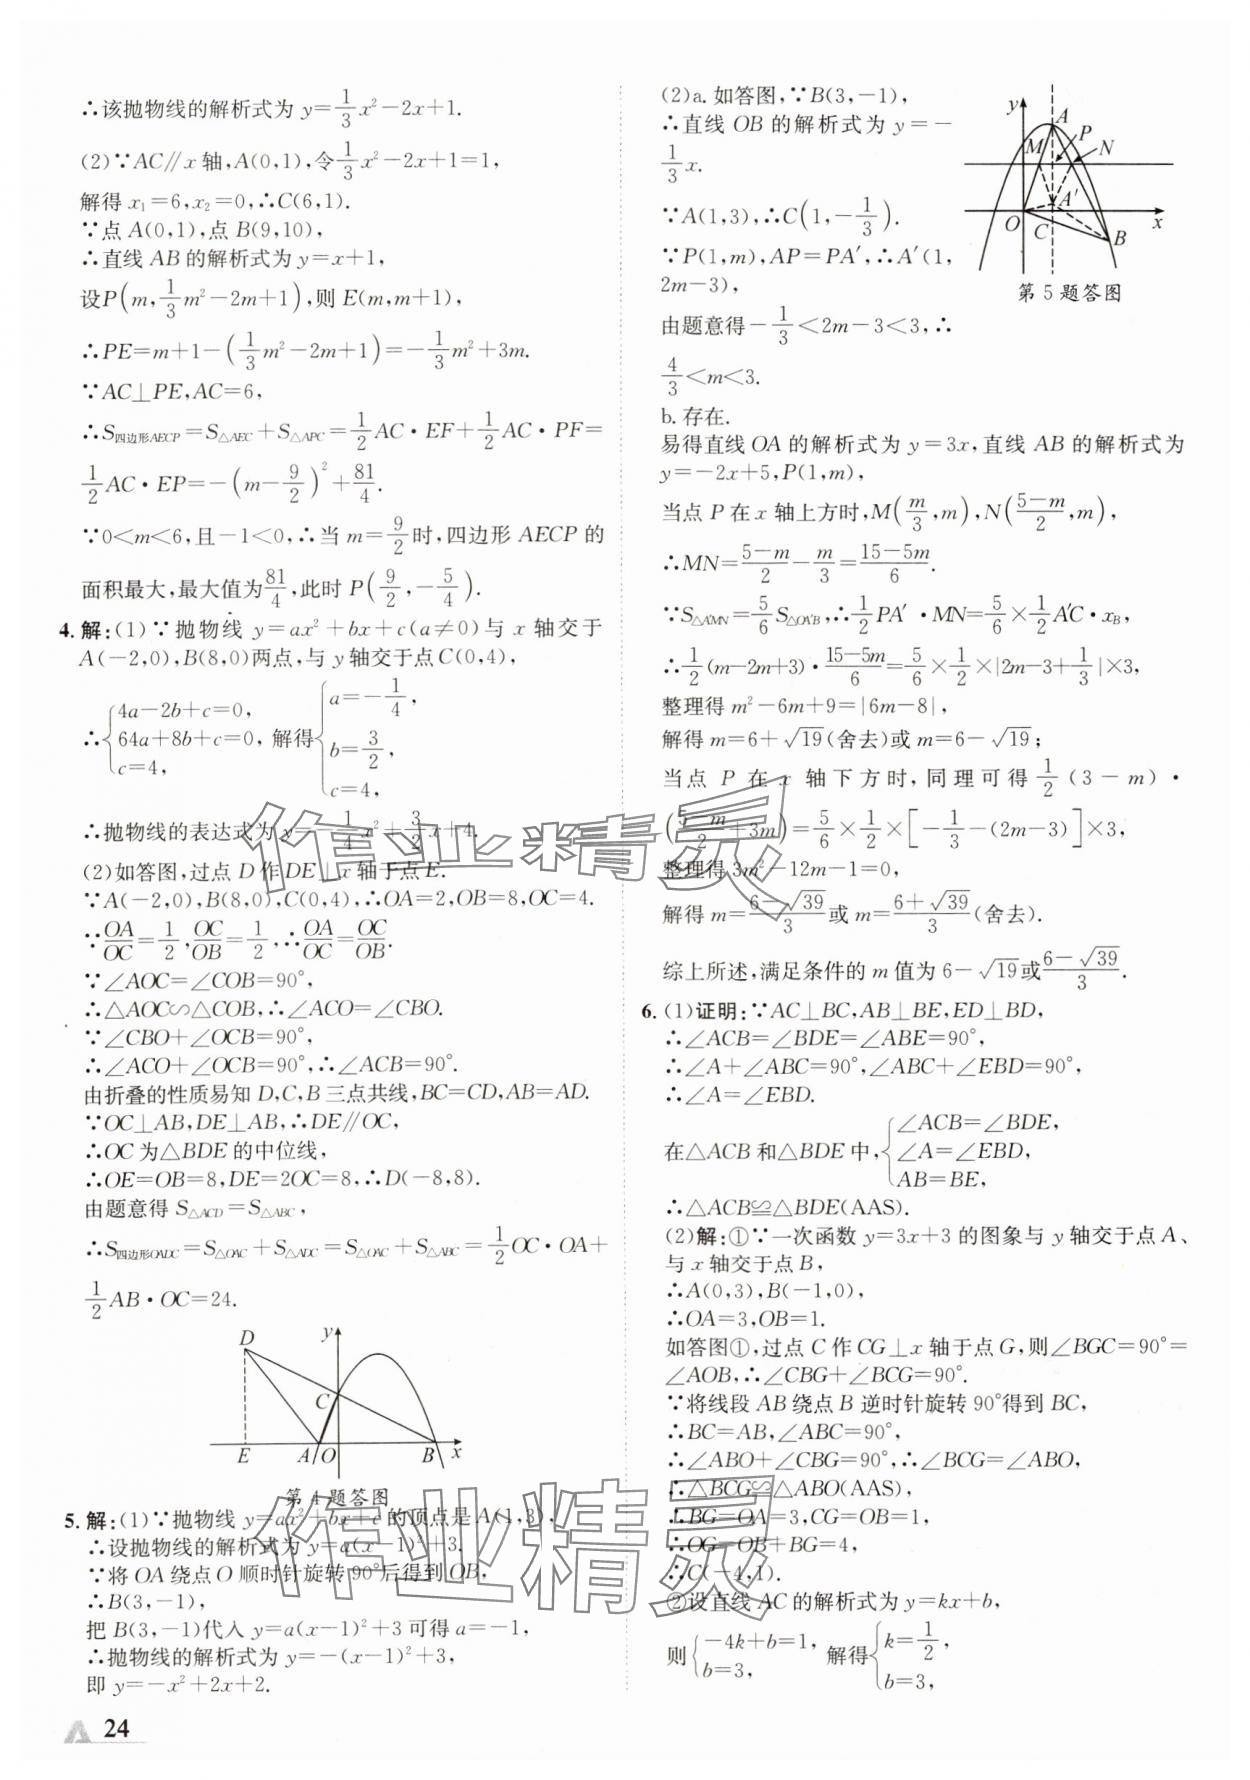 ∴该抛物线的解析式为 y=1/3x²-2x+1.
(2)∵AC∥x 轴,A(0,1),令1/3x²-2x+1=1,
解得 x₁=6,x₂=0,∴C(6,1).
∵点 A(0,1),点 B(9,10),
∴直线 AB 的解析式为 y=x+1,
设P(m,1/3m²-2m+1),则 E(m,m+1),
∴PE=m+1-(1/3m²-2m+1)=-1/3m²+3m.
∵AC⊥PE,AC=6,
∴S四边形AECP=S△AEC+S△APC=1/2AC·EF+1/2AC·PF=
1/2AC·EP=-(m-9/2)²+81/4.
∵0<m<6,且-1<0,∴当 m=9/2时,四边形 AECP 的
面积最大,最大值为81/4,此时 P(9/2,-5/4).
4. 解:(1)∵抛物线 y=ax²+bx+c(a≠0)与 x 轴交于
A(-2,0),B(8,0)两点,与 y轴交于点C(0,4),
∴{4a-2b+c=0, 64a+8b+c=0, c=4, 解得{a=-1/4, b=3/2, c=4,
∴抛物线的表达式为 y=-1/4x²+3/2x+4.
(2)如答图,过点 D 作 DE⊥x 轴于点 E.
∵A(-2,0),B(8,0),C(0,4),∴OA=2,OB=8,OC=4.
∵OA/OC=1/2,OC/OB=1/2,∴OA/OC=OC/OB.
∵∠AOC=∠COB=90°,
∴△AOC∽△COB,∴∠ACO=∠CBO.
∵∠CBO+∠OCB=90°,
∴∠ACO+∠OCB=90°,∴∠ACB=90°.
由折叠的性质易知 D,C,B 三点共线,BC=CD,AB=AD.
∵OC⊥AB,DE⊥AB,∴DE∥OC,
∴OC 为△BDE 的中位线,
∴OE=OB=8,DE=2OC=8,∴D(-8,8).
由题意得 S△ACD=S△ABC,
∴S四边形OADC=S△OAC+S△ADC=S△OAC+S△ABC=1/2OC·OA+
1/2AB·OC=24.
D
y
C
E
A
O
B
x
第 4 题答图
5. 解:(1)∵抛物线 y=ax²+bx+c 的顶点是 A(1,3),
∴设抛物线的解析式为 y=a(x-1)²+3.
∵将 OA 绕点 O 顺时针旋转 90°后得到 OB,
∴B(3,-1),
把 B(3,-1)代入 y=a(x-1)²+3 可得 a=-1,
∴抛物线的解析式为 y=-(x-1)²+3,
即 y=-x²+2x+2.
24
(2)a. 如答图,∵B(3,-1),
∴直线 OB 的解析式为 y=-
1/3x.
∵A(1,3),∴C(1,-1/3).
∵P(1,m),AP=PA′,∴A′(1,
2m-3),
由题意得-1/3<2m-3<3,∴
4/3<m<3.
y
A
P
M
N
A′
O
C
x
B
第 5 题答图
b. 存在.
易得直线 OA 的解析式为 y=3x,直线 AB 的解析式为
y=-2x+5,P(1,m),
当点 P 在 x 轴上方时,M(m/3,m),N((5-m)/2,m),
∴MN=(5-m)/2-m/3=(15-5m)/6.
∵S△A′MN=5/6S△OA′B,∴1/2PA′·MN=5/6×1/2A′C·x_B,
∴1/2(m-2m+3)·(15-5m)/6=5/6×1/2×|2m-3+1/3|×3,
整理得 m²-6m+9=|6m-8|,
解得 m=6+√19(舍去)或 m=6-√19;
当点 P 在 x 轴下方时,同理可得1/2(3-m)·
((5-m)/2+3m)=5/6×1/2×[-1/3-(2m-3)]×3,
整理得 3m²-12m-1=0,
解得 m=(6-√39)/3或 m=(6+√39)/3(舍去).
综上所述,满足条件的 m 值为 6-√19或(6-√39)/3.
6. (1)证明:∵AC⊥BC,AB⊥BE,ED⊥BD,
∴∠ACB=∠BDE=∠ABE=90°,
∴∠A+∠ABC=90°,∠ABC+∠EBD=90°,
∴∠A=∠EBD.
在△ACB 和△BDE 中,{∠ACB=∠BDE, ∠A=∠EBD, AB=BE,
∴△ACB≌△BDE(AAS).
(2)解:①∵一次函数 y=3x+3 的图象与 y 轴交于点 A、
与 x 轴交于点 B,
∴A(0,3),B(-1,0),
∴OA=3,OB=1.
如答图①,过点 C 作 CG⊥x 轴于点 G,则∠BGC=90°=
∠AOB,∴∠CBG+∠BCG=90°.
∵将线段 AB 绕点 B 逆时针旋转 90°得到 BC,
∴BC=AB,∠ABC=90°,
∴∠ABO+∠CBG=90°,∴∠BCG=∠ABO,
∴△BCG≌△ABO(AAS),
∴BG=OA=3,CG=OB=1,
∴OG=OB+BG=4,
∴C(-4,1).
②设直线 AC 的解析式为 y=kx+b,
则{-4k+b=1, b=3, 解得{k=1/2, b=3,
作业精灵
作业精灵